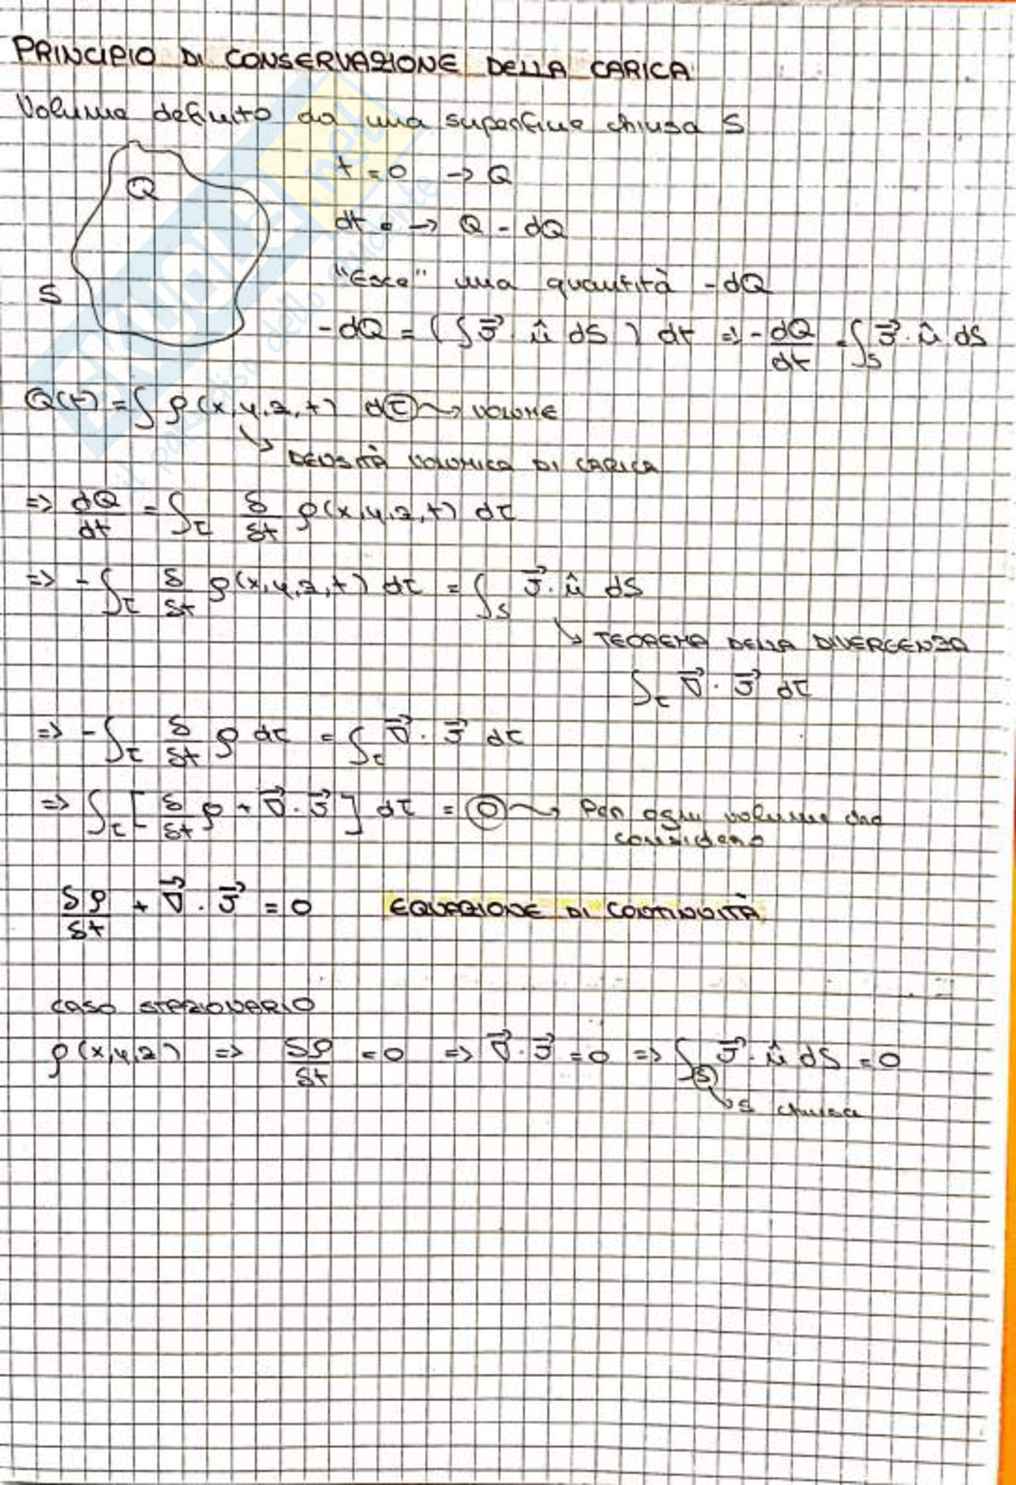 PRINCIPIO DI CONSERVAZIONE DELLA CARICA
Volume definito da una superficie chiusa S
Q
S
t = 0 → Q
dt = → Q - dQ
"Esce" una quantità -dQ
-dQ = (∫ J⃗ · û dS) dt ⇒ -dQ/dt = ∫_S J⃗ · û dS
Q(t) = ∫ ρ(x,y,z,t) dτ → VOLUME
↳ DENSITÀ VOLUMICA DI CARICA
⇒ dQ/dt = ∫_τ δ/δt ρ(x,y,z,t) dτ
⇒ -∫_τ δ/δt ρ(x,y,z,t) dτ = ∫_S J⃗ · û dS
↳ TEOREMA DELLA DIVERGENZA
∫_τ ∇⃗ · J⃗ dτ
⇒ -∫_τ δ/δt ρ dτ = ∫_τ ∇⃗ · J⃗ dτ
⇒ ∫_τ [δ/δt ρ + ∇⃗ · J⃗] dτ = 0 → Per ogni volume che
considero
δρ/δt + ∇⃗ · J⃗ = 0 EQUAZIONE DI CONTINUITÀ
CASO STAZIONARIO
ρ(x,y,z) ⇒ δρ/δt = 0 ⇒ ∇⃗ · J⃗ = 0 ⇒ ∫_S J⃗ · û dS = 0
↳ S chiusa